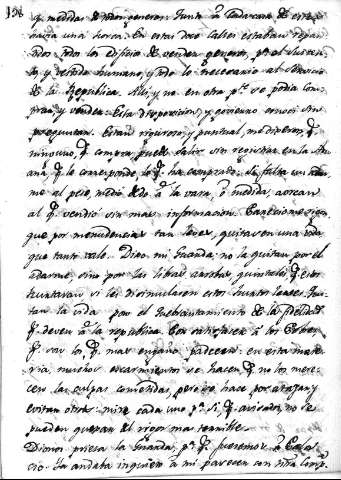 198
y medidas de todos generos. Junto à cada casa de estas
havia una horca. En estas doce calles estaban repar-
tidos todos los oficios de vender generos, pª el susten-
to, y vestido humano, y todo lo necesario al servicio
de la Republica. Alli, y no en otra pte se podia com-
prar, y vender: Esta disposicion, y govierno
preguntar. Estaño rigoroso, y puntual, me dixeron, q.
ninguno, q. compra puede salir sin registrar en la Adu-
ana, q. le corresponde, lo q. ha comprado. Si falta un adar-
me al peso, medio dedo à la vara, ò medida, aorcan
al q. vendio sin mas informacion. Parecionos
que por menudencias tan leves, quitasen una vida
que tanto vale. Dixo mi Guarda: no la quitan por el
adarme sino por las libras arrobas, quintales, q. estos
hurtaran si les disimulasen estos hurtos leves. Qui-
tan la vida por el quebrantamiento de la fidelidad
q. deven à la republica. Con otros oficios à los Pobres
q. son los q. mas engaño padecen: en esta mate-
ria muchos escarmientos se hacen q. no los mere-
cen las culpas cometidas, pero se hace por atajar, y
evitar otras: mire cada uno pr si, q. avisados, no se
pueden quexar del rigor mas temible.
Dionos priesa la Guarda, pª q. fuesemos à Pala-
cio. La andata inquieta à mi parecer con otra comp.